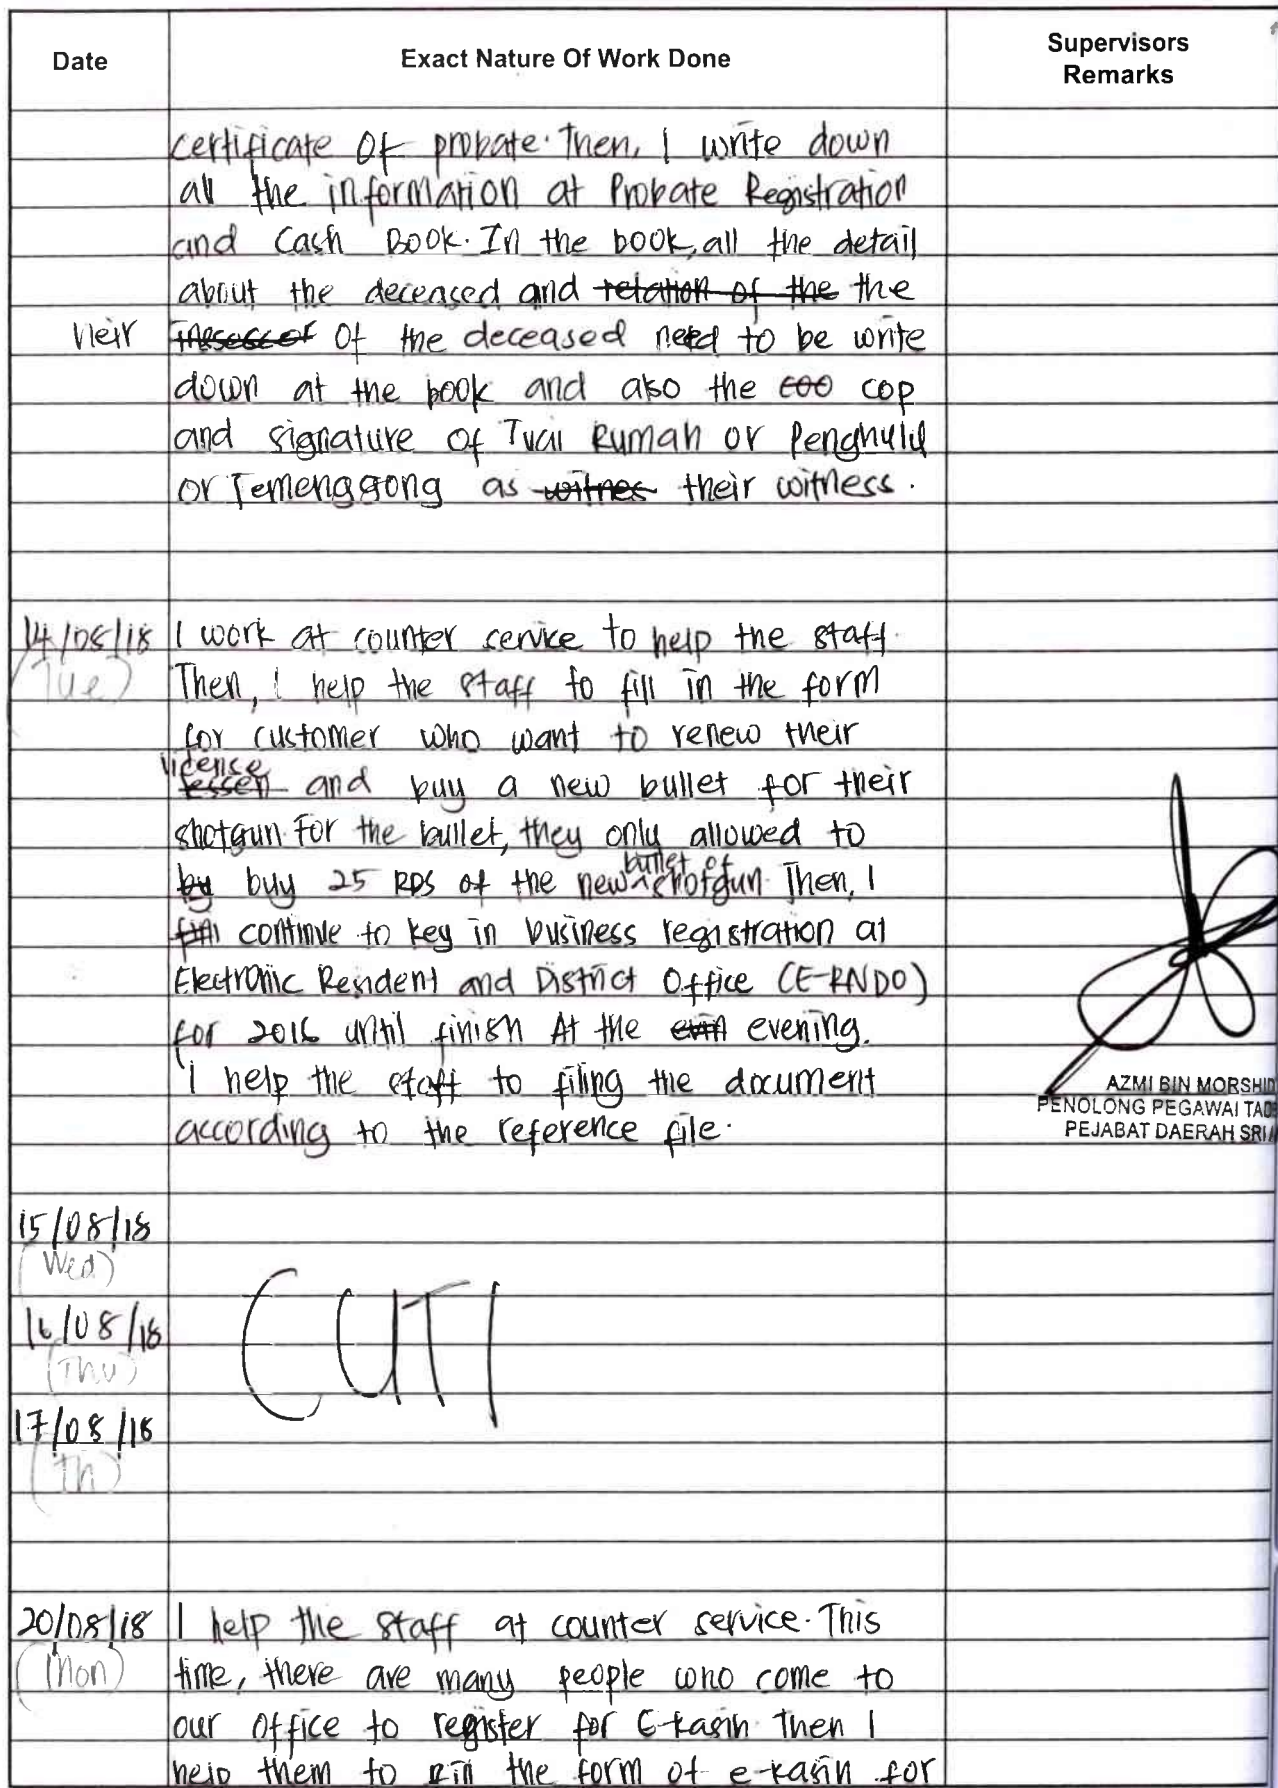 Date Exact Nature Of Work Done Supervisors
Remarks
certificate of probate. Then, I write down
all the information at Probate Registration
and Cash Book. In the book, all the detail
about the deceased and relation of the the
heir of the deceased need to be write
down at the book and also the coo cop
and signature of Tuai Rumah or Penghulu
or Temenggong as witnes their witness.
14/08/18 I work at counter service to help the staff.
(Tue) Then, I help the staff to fill in the form
for customer who want to renew their
license
lessen and buy a new bullet for their
shotgun. For the bullet, they only allowed to
bullet of
by buy 25 RDS of the new shotgun. Then, I
continue to key in business registration at
Electronic Resident and District Office (E-RNDO)
for 2016 until finish At the evening.
I help the staff to filing the document
according to the reference file.
AZMI BIN MORSHID
PENOLONG PEGAWAI TAD
PEJABAT DAERAH SRI
15/08/18
(Wed)
CUTI
16/08/18
(Thu)
17/08/18
20/08/18 I help the staff at counter service. This
(Mon) time, there are many people who come to
our office to register for E-kasih. Then I
help them to fill the form of e-kasih for